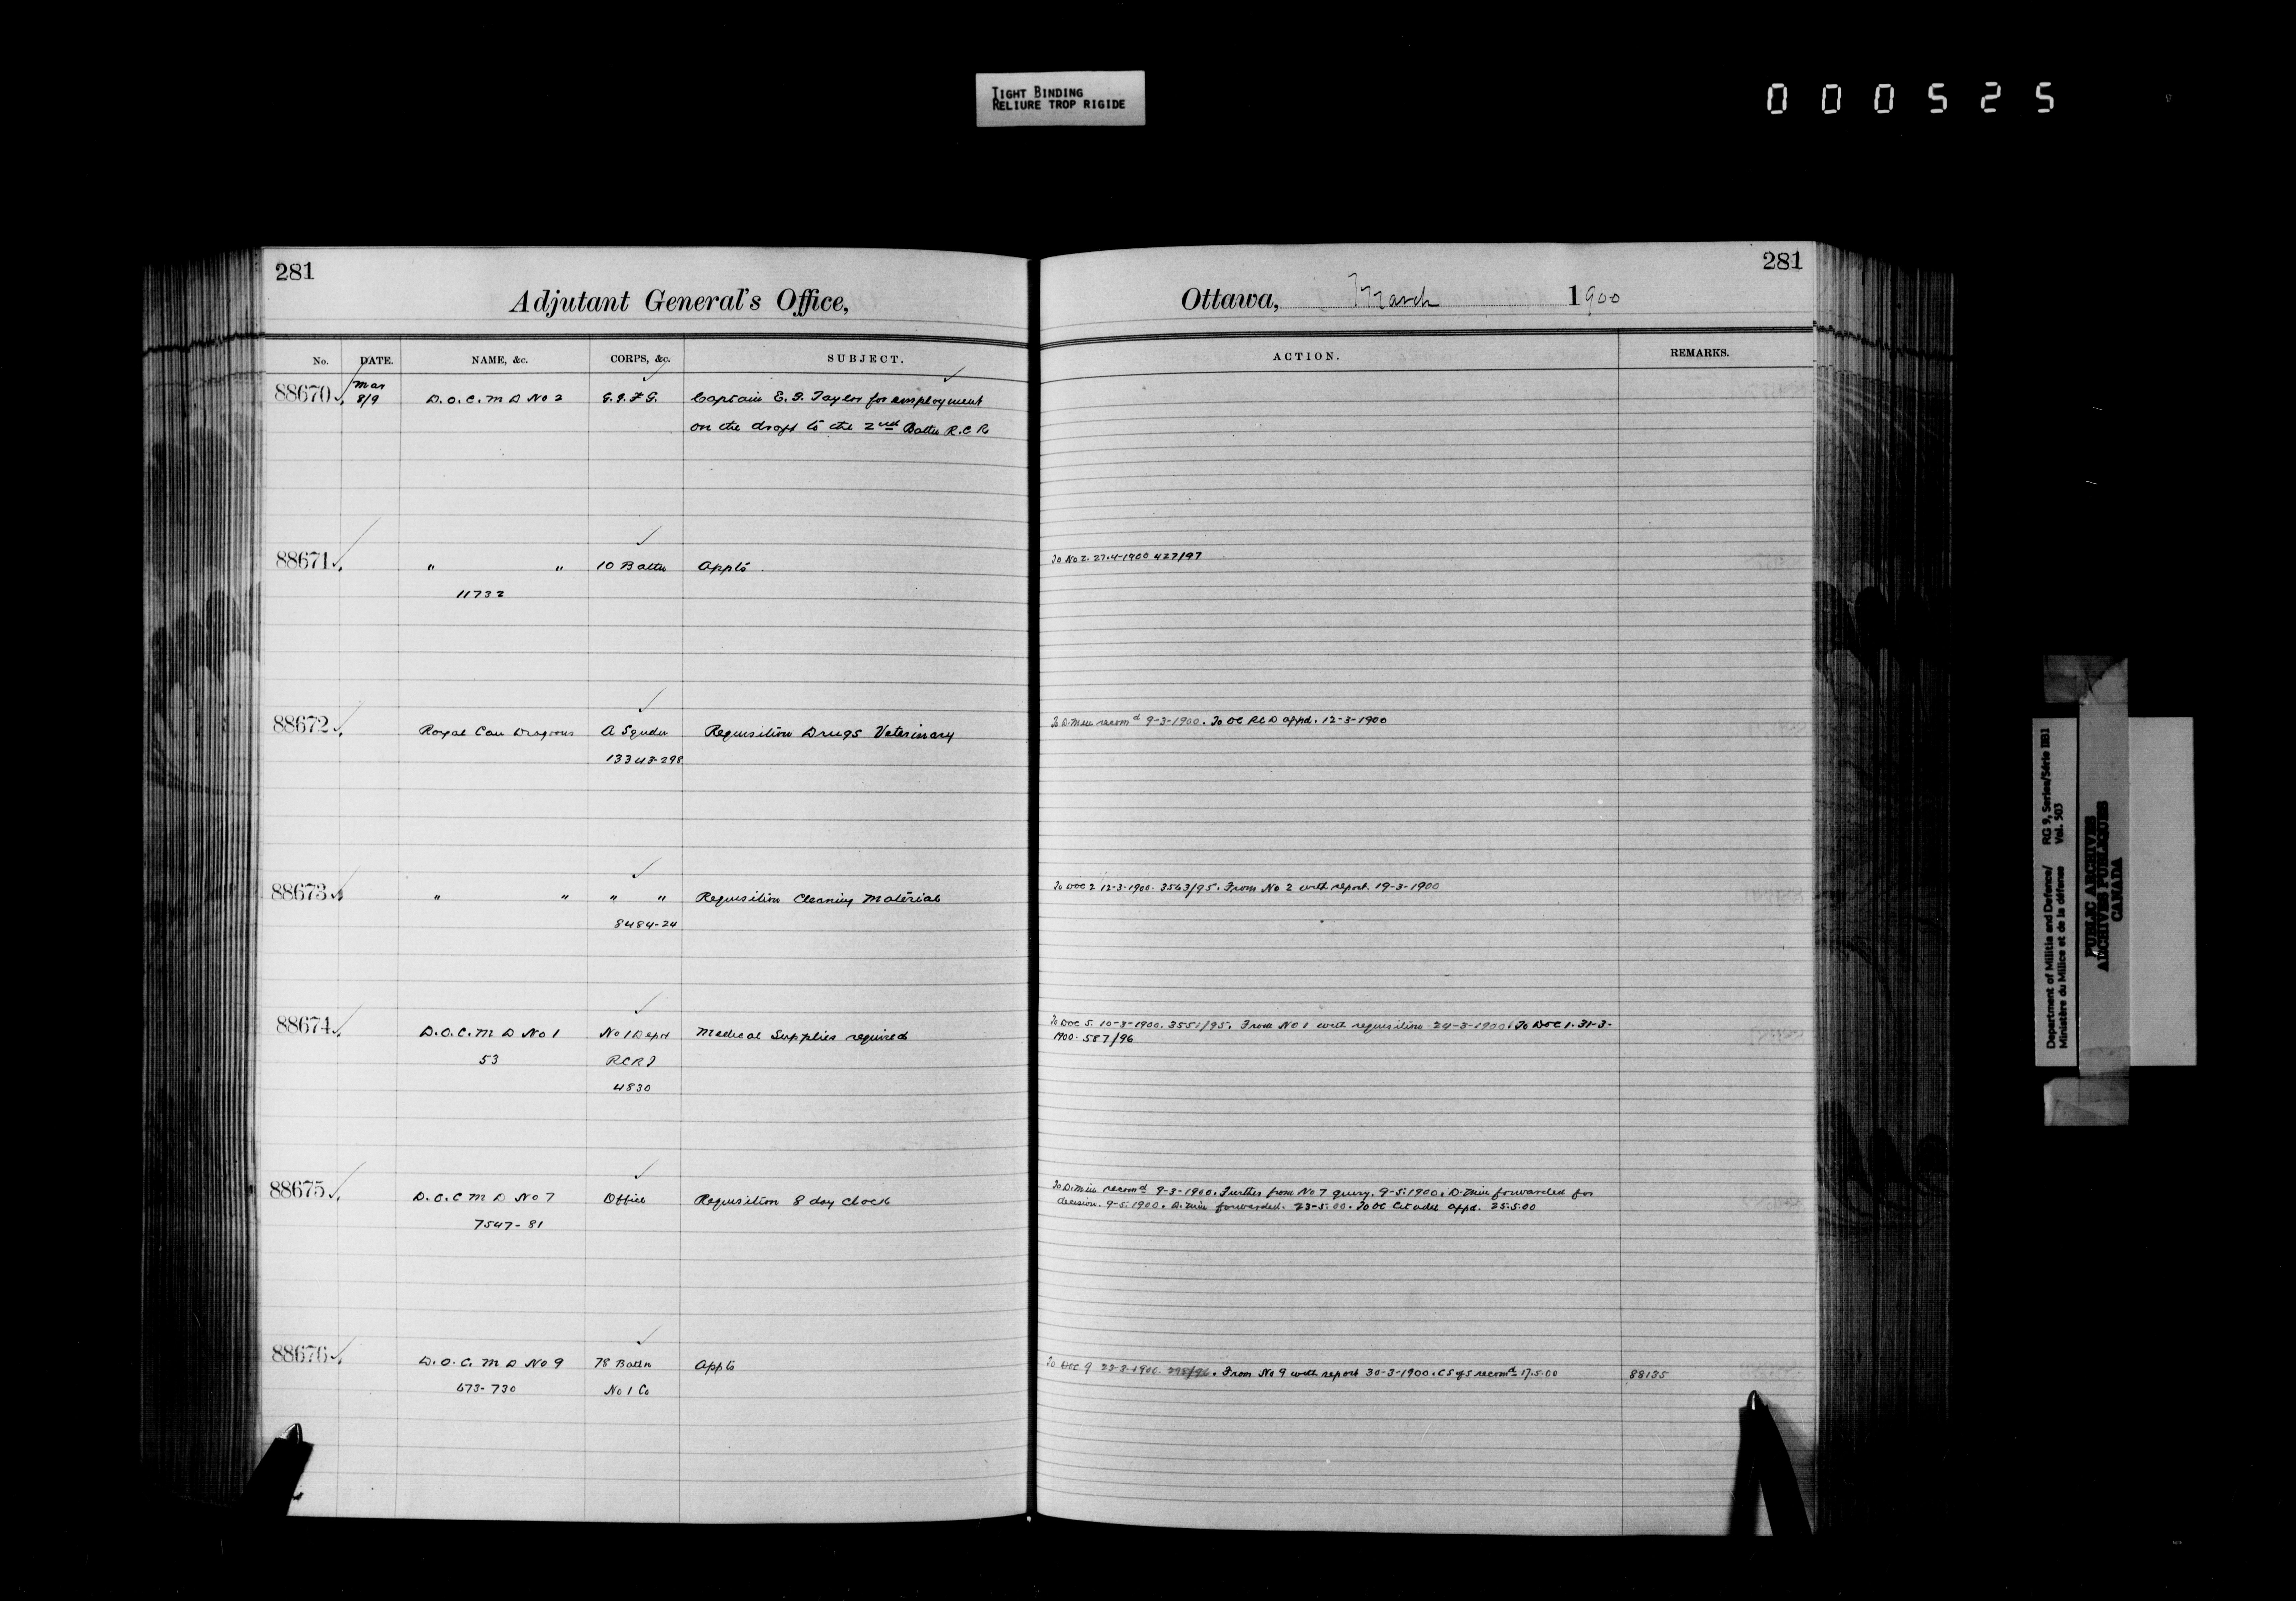 TIGHT BINDING
RELIURE TROP RIGIDE
000525
281
Adjutant General's Office,
No. DATE. NAME, &c. CORPS, &c. SUBJECT.
88670 Mar 8/9 D.O.C. M D No 2 G.G.F.G. Captain E. G. Taylor for employment
on the draft to the 2nd Battn R.C.R
88671 " " 10 Battn Appts
11732
88672 Royal Can Dragoons A Squdn Requisition Drugs Veterinary
13343-298
88673 " " " " Requisition Cleaning Materials
8484-24
88674 D.O.C. M D No 1 No 1 Dept Medical Supplies required
53 RCRI
4830
88675 D.O.C M D No 7 Office Requisition 8 day clock
7547-81
88676 D.O.C. M D No 9 78 Battn Appts
673-730 No 1 Co
281
Ottawa, March 1900
ACTION. REMARKS.
To No 2. 27.4-1900 427/97
To D. Min recomd 9-3-1900. To OC RCD appd. 12-3-1900
To DOC 2 12-3-1900. 3563/95. From No 2 with report. 19-3-1900
To DOC 5. 10-3-1900. 3551/95. From No 1 with requisition 24-3-1900. To DOC 1. 31-3-
1900. 587/96
To D. Min recomd 9-3-1900. Further from No 7 query. 9-5-1900. D. Min forwarded for
decision. 9-5-1900. D. Min forwarded. 23-5-00. To OC Citadel appd. 25.5.00
To DOC 9 22-3-1900. 298/96. From No 9 with report 30-3-1900. CS of S recomd 17.5.00 88135
Department of Militia and Defence/ RG 9, Series/Série IIB1
Ministère du Milice et de la défense Vol. 503
PUBLIC ARCHIVES
ARCHIVES PUBLIQUES
CANADA